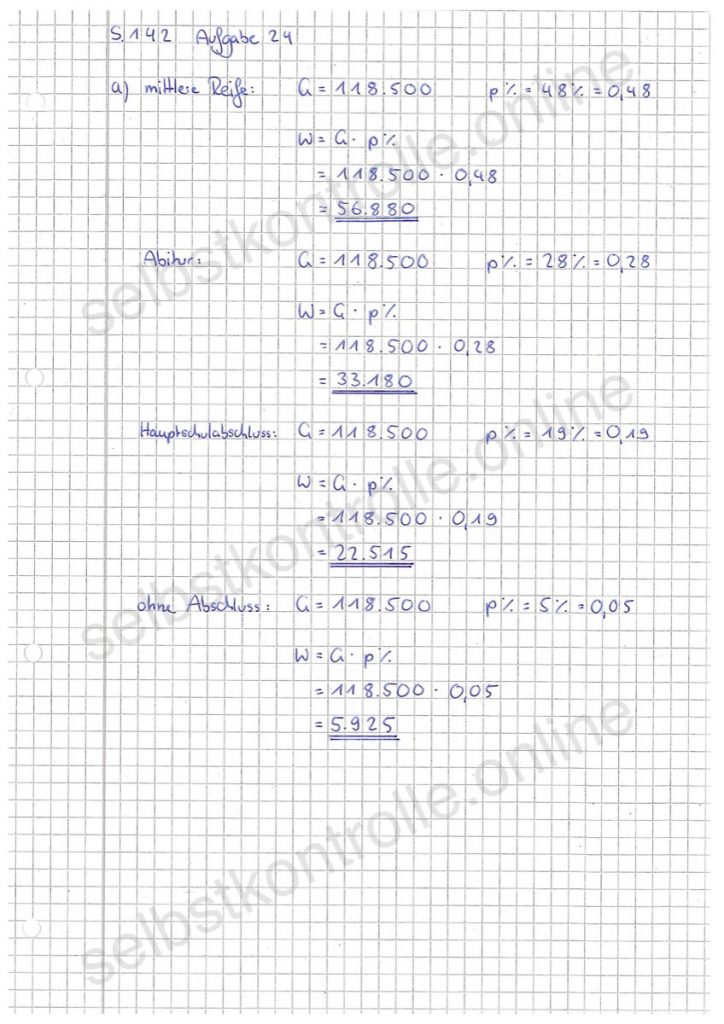 S.142 Aufgabe 24
a) mittlere Reife: G = 118.500 p% = 48% = 0,48
W = G · p%
= 118.500 · 0,48
= 56.880
Abitur: G = 118.500 p% = 28% = 0,28
W = G · p%
= 118.500 · 0,28
= 33.180
Hauptschulabschluss: G = 118.500 p% = 19% = 0,19
W = G · p%
= 118.500 · 0,19
= 22.515
ohne Abschluss: G = 118.500 p% = 5% = 0,05
W = G · p%
= 118.500 · 0,05
= 5.925
selbstkontrolle.online
selbstkontrolle.online
selbstkontrolle.online